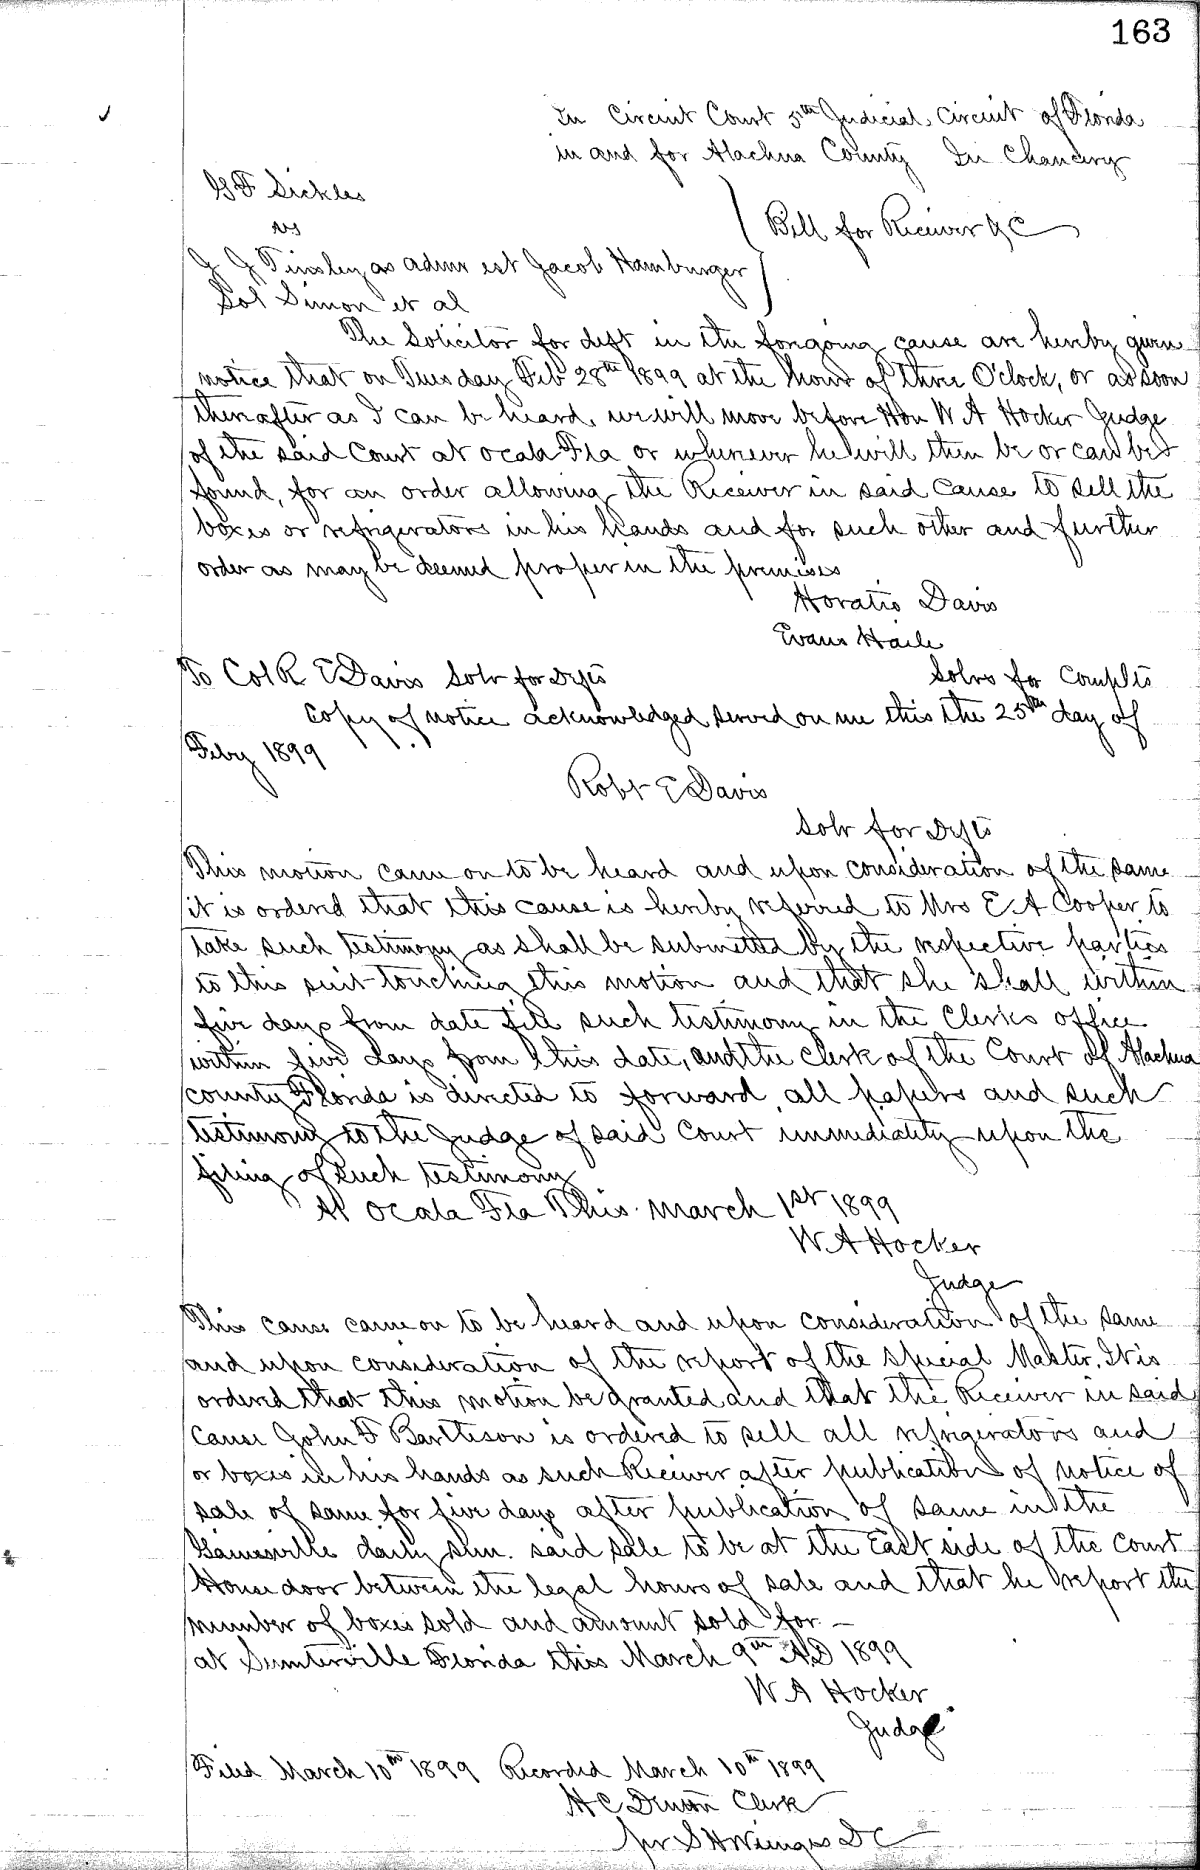 163
In Circuit Court 5th Judicial Circuit of Florida
in and for Alachua County In Chancery
G F Sickles
vs
J J Tinsley as admr est Jacob Hamburger
Sol Simon et al
Bill for Receiver &C
The Solicitor for deft in the forgoing cause are hereby given
notice that on Tuesday Feb 28th 1899 at the hour of three O'clock, or as soon
thereafter as I can be heard, we will move before Hon W A Hocker Judge
of the said Court at Ocala Fla or wherever he will then be or can be
found, for an order allowing the Receiver in said cause to sell the
boxes or refrigerators in his hands and for such other and further
order as may be deemed proper in the premises
Horatio Davis
Evans Haile
To Col R E Davis Solr for Defts
Solrs for Complts
Copy of notice acknowledged served on me this the 25th day of
Feby 1899
Robt E Davis
Solr for Defts
This motion came on to be heard and upon consideration of the same
it is ordered that this cause is hereby referred to Mrs E A Cooper to
take such testimony as shall be submitted by the respective parties
to this suit touching this motion and that she shall within
five days from date file such testimony in the Clerks office
within five days from this date, and the clerk of the Court of Alachua
county Florida is directed to forward all papers and such
testimony to the Judge of said Court immediately upon the
filing of such testimony
At Ocala Fla This March 1st 1899
W A Hocker
Judge
This cause came on to be heard and upon consideration of the same
and upon consideration of the report of the Special Master, It is
ordered that this motion be granted and that the Receiver in said
Cause John F Bartleson is ordered to sell all refrigerators and
or boxes in his hands as such Receiver after publication of notice of
sale of same for five days after publication of same in the
Gainesville daily Sun. said sale to be at the East side of the Court
House door between the legal hours of sale and that he report the
number of boxes sold and amount sold for -
at Sumterville Florida this March 9th AD 1899
W A Hocker
Judge
Filed March 10th 1899 Recorded March 10th 1899
H C Denton Clerk
per S H Wienges D C